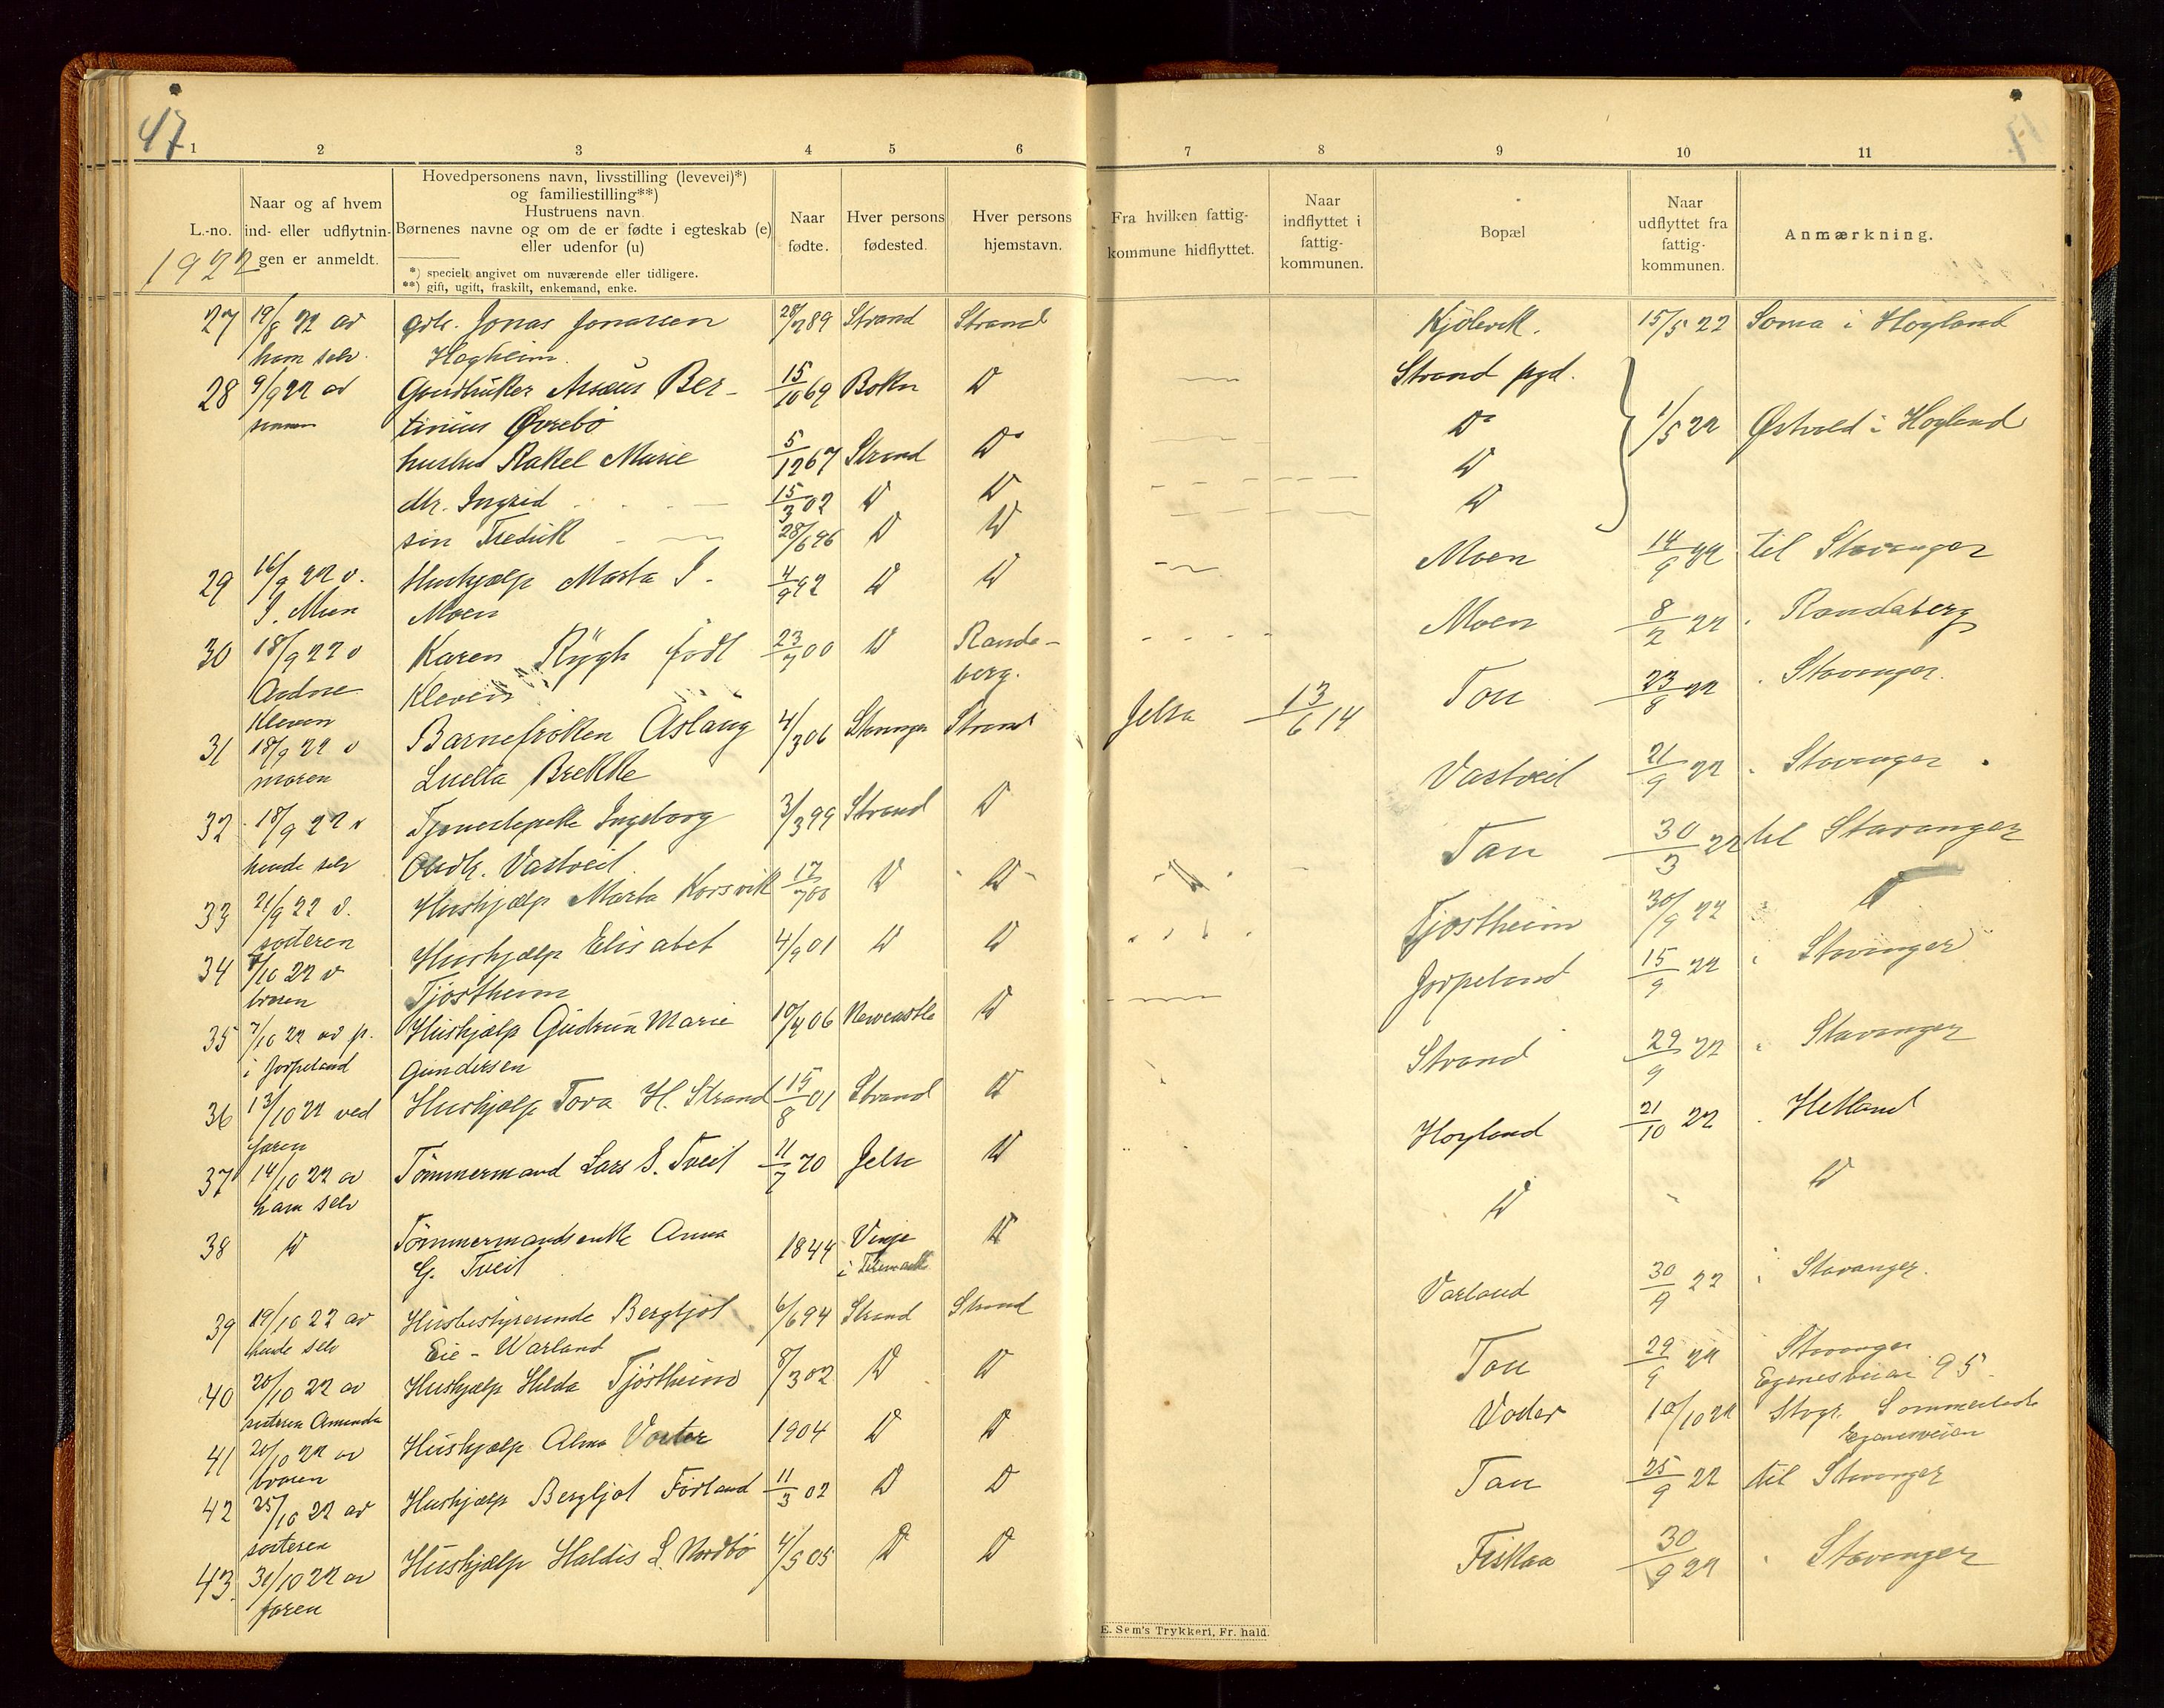 47
1 2 3 4 5 6 7 8 9 10 11
L.-no.
1922
Naar og af hvem
ind- eller udflytnin-
gen er anmeldt.
Hovedpersonens navn, livsstilling (levevei)*)
og familiestilling**)
Hustruens navn.
Børnenes navne og om de er fødte i egteskab (e)
eller udenfor (u)
*) specielt angivet om nuværende eller tidligere.
**) gift, ugift, fraskilt, enkemand, enke.
Naar
fødte.
Hver persons
fødested.
Hver persons
hjemstavn.
Fra hvilken fattig-
kommune hidflyttet.
Naar
indflyttet i
fattig-
kommunen.
Bopæl
Naar
udflyttet fra
fattig-
kommunen.
Anmærkning.
27 19/8 22 av Jonas Jonassen 89 Strand Strand Kjölevik. 15/5 22 Soma i Høyland
ham selv. Hagheim.
28 9/9 22 av Ber- 15/10 69 Bokn D Strand pgd.
samme tinius Øvrebö D 1/5 22 Østvold i Høyland
hustru Rakel Marie 5/12 67 Strand D D
dtr. Ingrid 15/3 02 D D D
søn Fredrik 28/6 96 D D
29 16/9 22 v. Hushjælp Marta J. 4/9 92 D D Moen 14/9 22 til Stavanger
J. Moen Moen
30 18/9 22 v Karen Rygh født 23/7 00 D Randa- Moen 8/2 22 Randaberg
Andne Kleven berg.
Kleven
31 18/9 22 v Barnefröken Aslaug 4/3 06 Stavanger Strand Jelsa 13/6 14 Tou 23/8 22 Stavanger.
moren Luella Brekke
32 18/9 22 v Ingeborg 3/3 99 Strand D Vastveit 21/9 22 Stavanger
hende selv Andr. Vastveit.
33 21/9 22 v. Hushjælp Marta Korsvik 17/7 00 D D Tau 30/3 22 til Stavanger
søsteren
34 /10 22 v Hushjælp Elisabet 4/9 01 D D Tjøstheim 30/9 22 D
broren Tjöstheim
35 7/10 22 av p. Hushjælp Gudrun Marie 10/4 06 Newcastle D Jørpeland 15/9 22 Stavanger
i Jørpeland Gundersen
36 13/10 22 ved Hushjælp Tora H. Strand 15/8 01 Strand D Strand 29/9 22 Stavanger
faren
37 14/10 22 av Tömmermand Lars S. Tveit 11/7 70 Jelsa D Høyland 21/10 22 Hetland
ham selv
38 D Tömmermandsenke Anna 1844 Vinje D D D
G. Tveit i Telemark
39 19/10 22 av Husbestyrerinde Bergljot 6/6 94 Strand Strand Varland 30/9 22 Stavanger.
hende selv Eie - Warland
40 20/10 22 av Hushjælp Hilda Tjöstheim 8/3 02 D D Tou 29/9 22 Stavanger
søsteren Amanda Egenesveien 95.
41 20/10 22 av Hushjælp Alma 1904 D D 10/10 22 Stvgr.
broren Egenesveien
42 25/10 22 av Hushjælp Bergljot Förland 11/3 02 D D Tau 25/9 22 til Stavanger
søsteren
43. 31/10 22 av Hushjælp Haldis L. Nordbö 4/5 05 D D Fiskaa 30/9 22 Stavanger
faren
E. Sem's Trykkeri, Fr. hald.